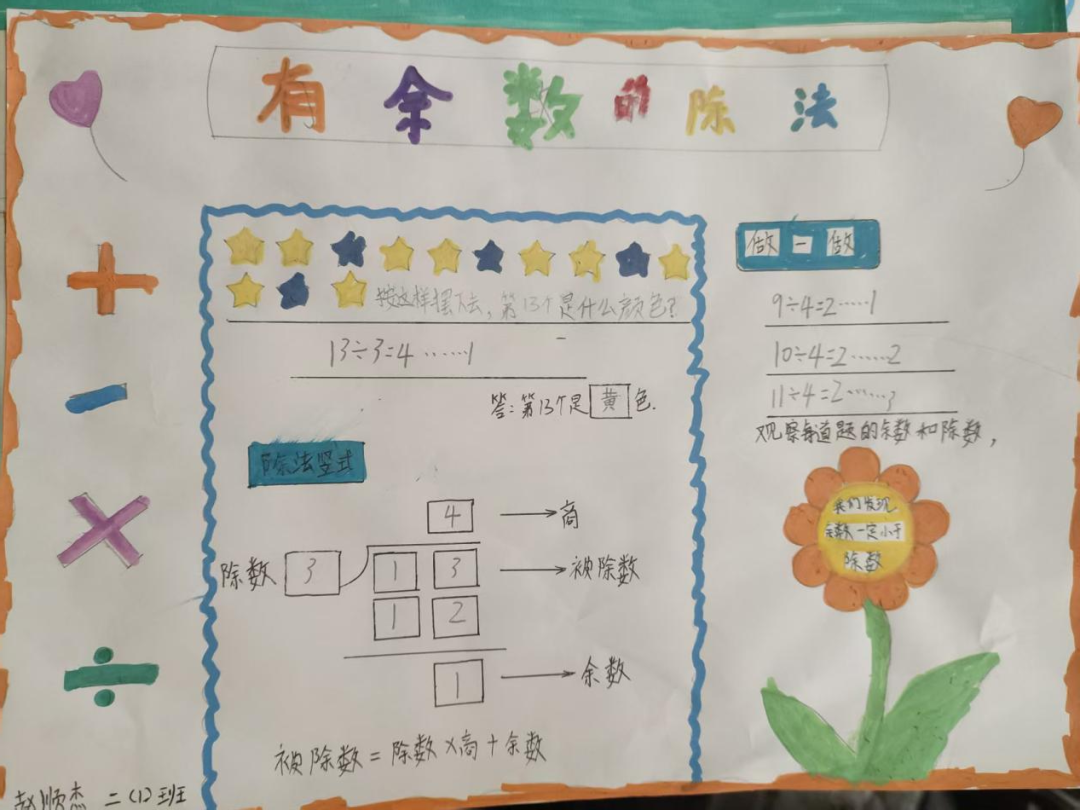 有余数的除法
按这样摆下去,第13个是什么颜色?
13÷3=4……1
答:第13个是黄色.
除法竖式
4 → 商
除数 3 1 3 → 被除数
1 2
1 → 余数
被除数=除数×商+余数
做一做
9÷4=2……1
10÷4=2……2
11÷4=2……3
观察每道题的余数和除数,
我们发现
余数一定小于
除数
赵顺杰 二(1)班